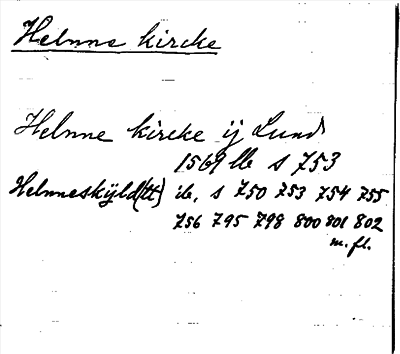 Helnne kircke
Helnne kircke ij Lund
1569 lb s 753
Helnneskijld(tt) ib, s 750 753 754 755
756 795 798 800 801 802
m. fl.